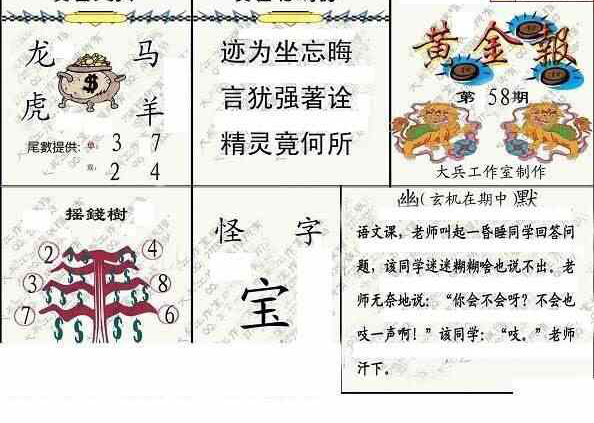 龙 马
虎 羊
尾數提供: 单: 3 7
双: 2 4
迹为坐忘晦
言犹强著诠
精灵竟何所
黄金報
第 58期
大兵工作室制作
摇錢樹
2 4
3 8
7 6
怪 字
宝
幽(玄机在期中)默
语文课，老师叫起一昏睡同学回答问
题，该同学迷迷糊糊啥也说不出。老
师无奈地说：“你会不会呀？不会也
吱一声啊！”该同学：“吱。”老师
汗下。